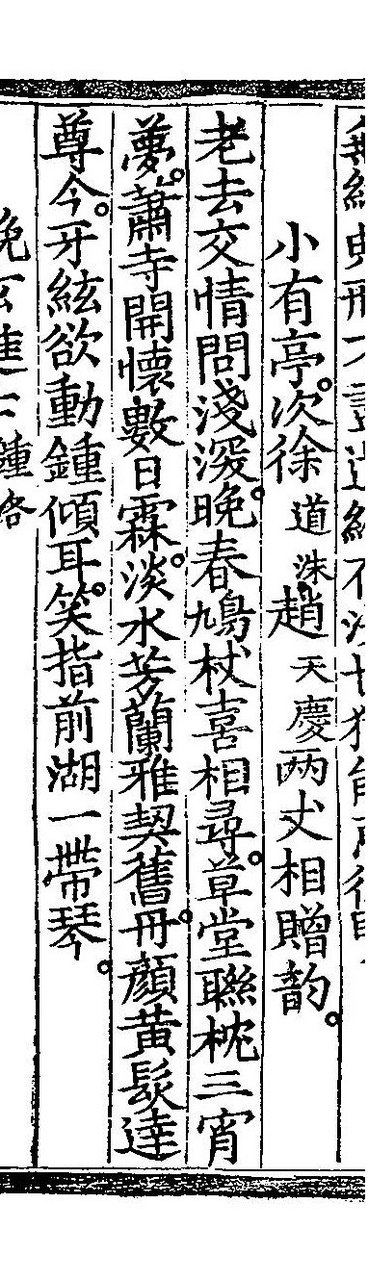 小有亭。次徐道洙趙天慶两丈相贈韵。
老去交情問淺深。晚春鳩杖喜相尋。草堂聯枕三宵
夢。蕭寺開懷數日霖。淡水芳蘭雅契舊。丹顔黃髮達
尊今。牙絃欲動鍾傾耳。笑指前湖一帶琴。